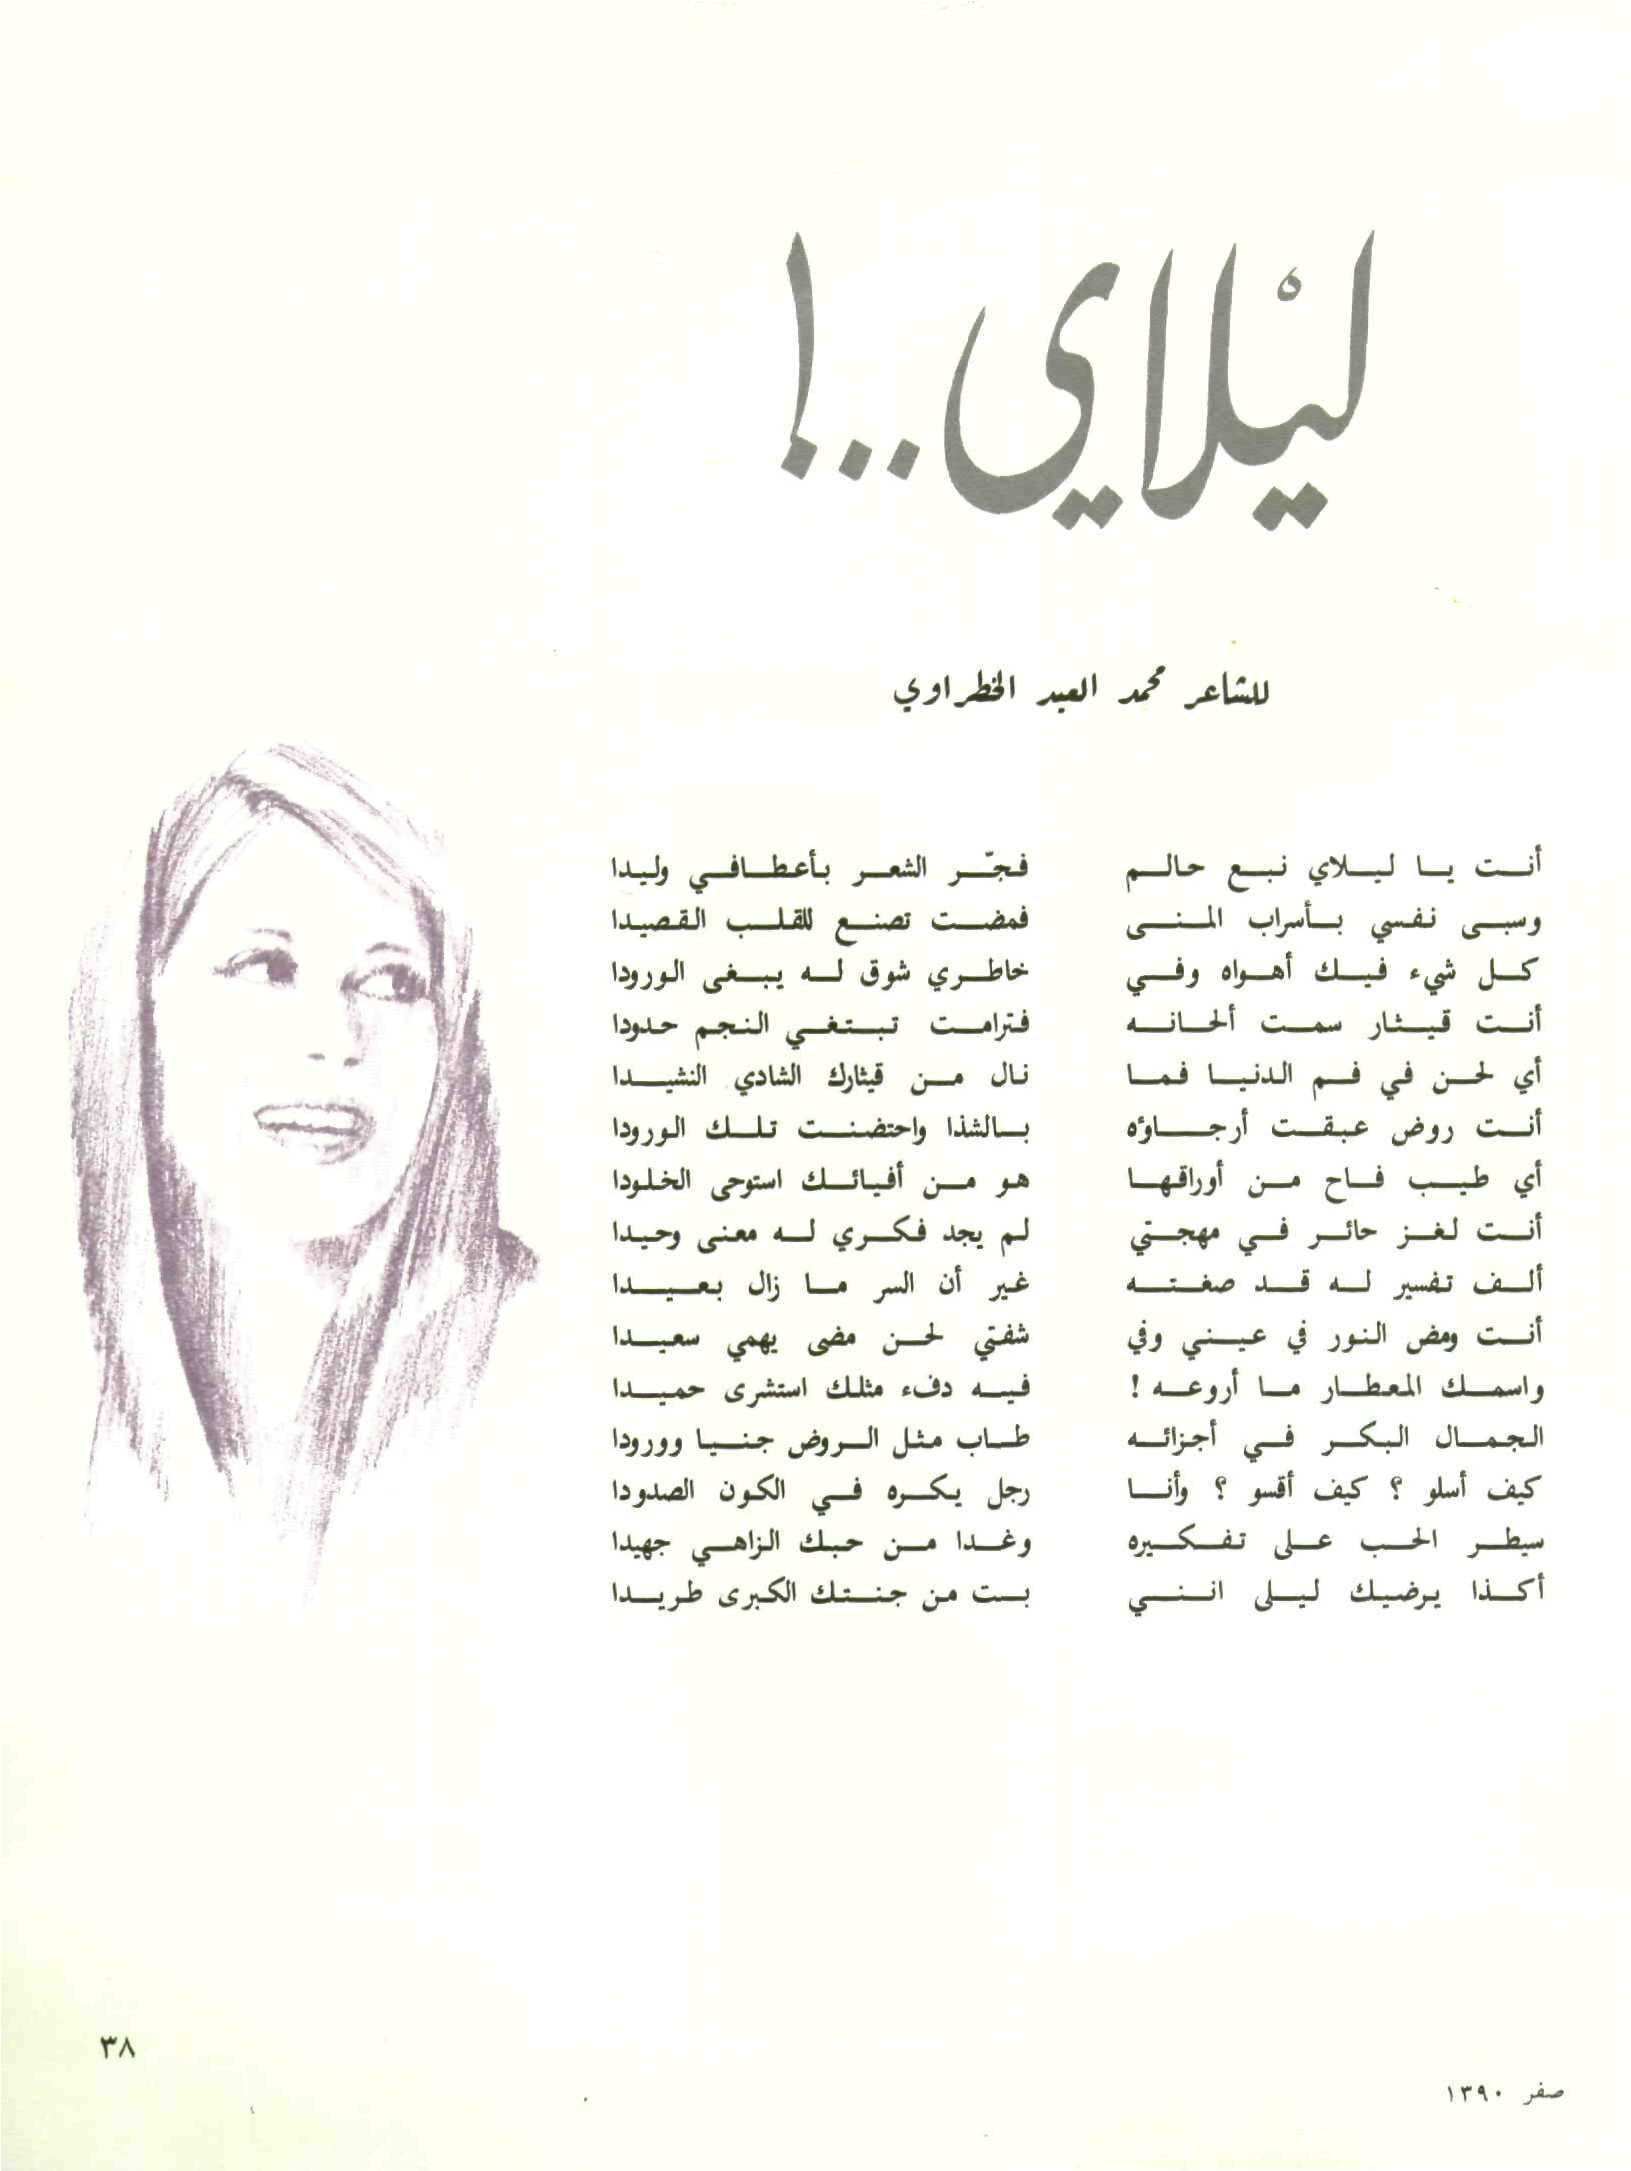 ليْلاي ...!
للشاعر محمد العيد الخطراوي
أنت يا ليلاي نبع حالم فجّر الشعر بأعطافي وليدا
وسبى نفسي بأسراب المنى فمضت تصنع للقلب القصيدا
كل شيء فيك أهواه وفي خاطري شوق له يبغى الورودا
أنت قيثار سمت ألحانه فترامت تبتغي النجم حدودا
أي لحن في فم الدنيا فما نال من قيثارك الشادي النشيدا
أنت روض عبقت أرجاؤه بالشذا واحتضنت تلك الورودا
أي طيب فاح من أوراقها هو من أفيائك استوحى الخلودا
أنت لغز حائر في مهجتي لم يجد فكري له معنى وحيدا
ألف تفسير له قد صغته غير أن السر ما زال بعيدا
أنت ومض النور في عيني وفي شفتي لحن مضى يهمي سعيدا
واسمك المعطار ما أروعه ! فيه دفء مثلك استشرى حميدا
الجمال البكر في أجزائه طاب مثل الروض جنيا وورودا
كيف أسلو ؟ كيف أقسو ؟ وأنا رجل يكره في الكون الصدودا
سيطر الحب على تفكيره وغدا من حبك الزاهي جهيدا
أكذا يرضيك ليلى انني بت من جنتك الكبرى طريدا
٣٨
صفر ١٣٩٠